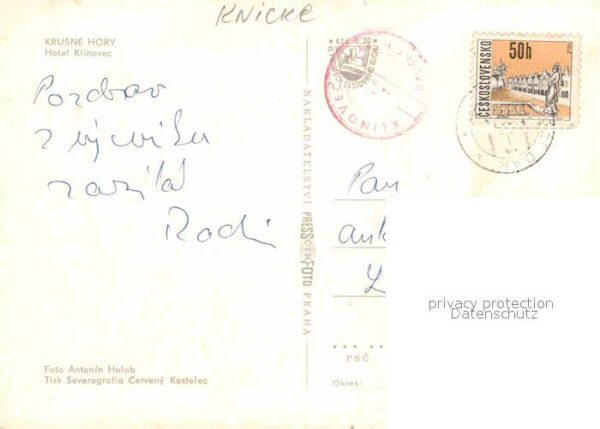 KNICKE
KRUŠNÉ HORY
Hotel Klínovec
Pozdrav
z výcviku
zasílá
Radi
NAKLADATELSTVÍ PRESSFOTO PRAHA
KLÍNOVEC
ČESKOSLOVENSKO
50h
Pan
L
privacy protection
Datenschutz
PSČ
Okres:
Foto Antonín Holub
Tisk Severografia Červený Kostelec